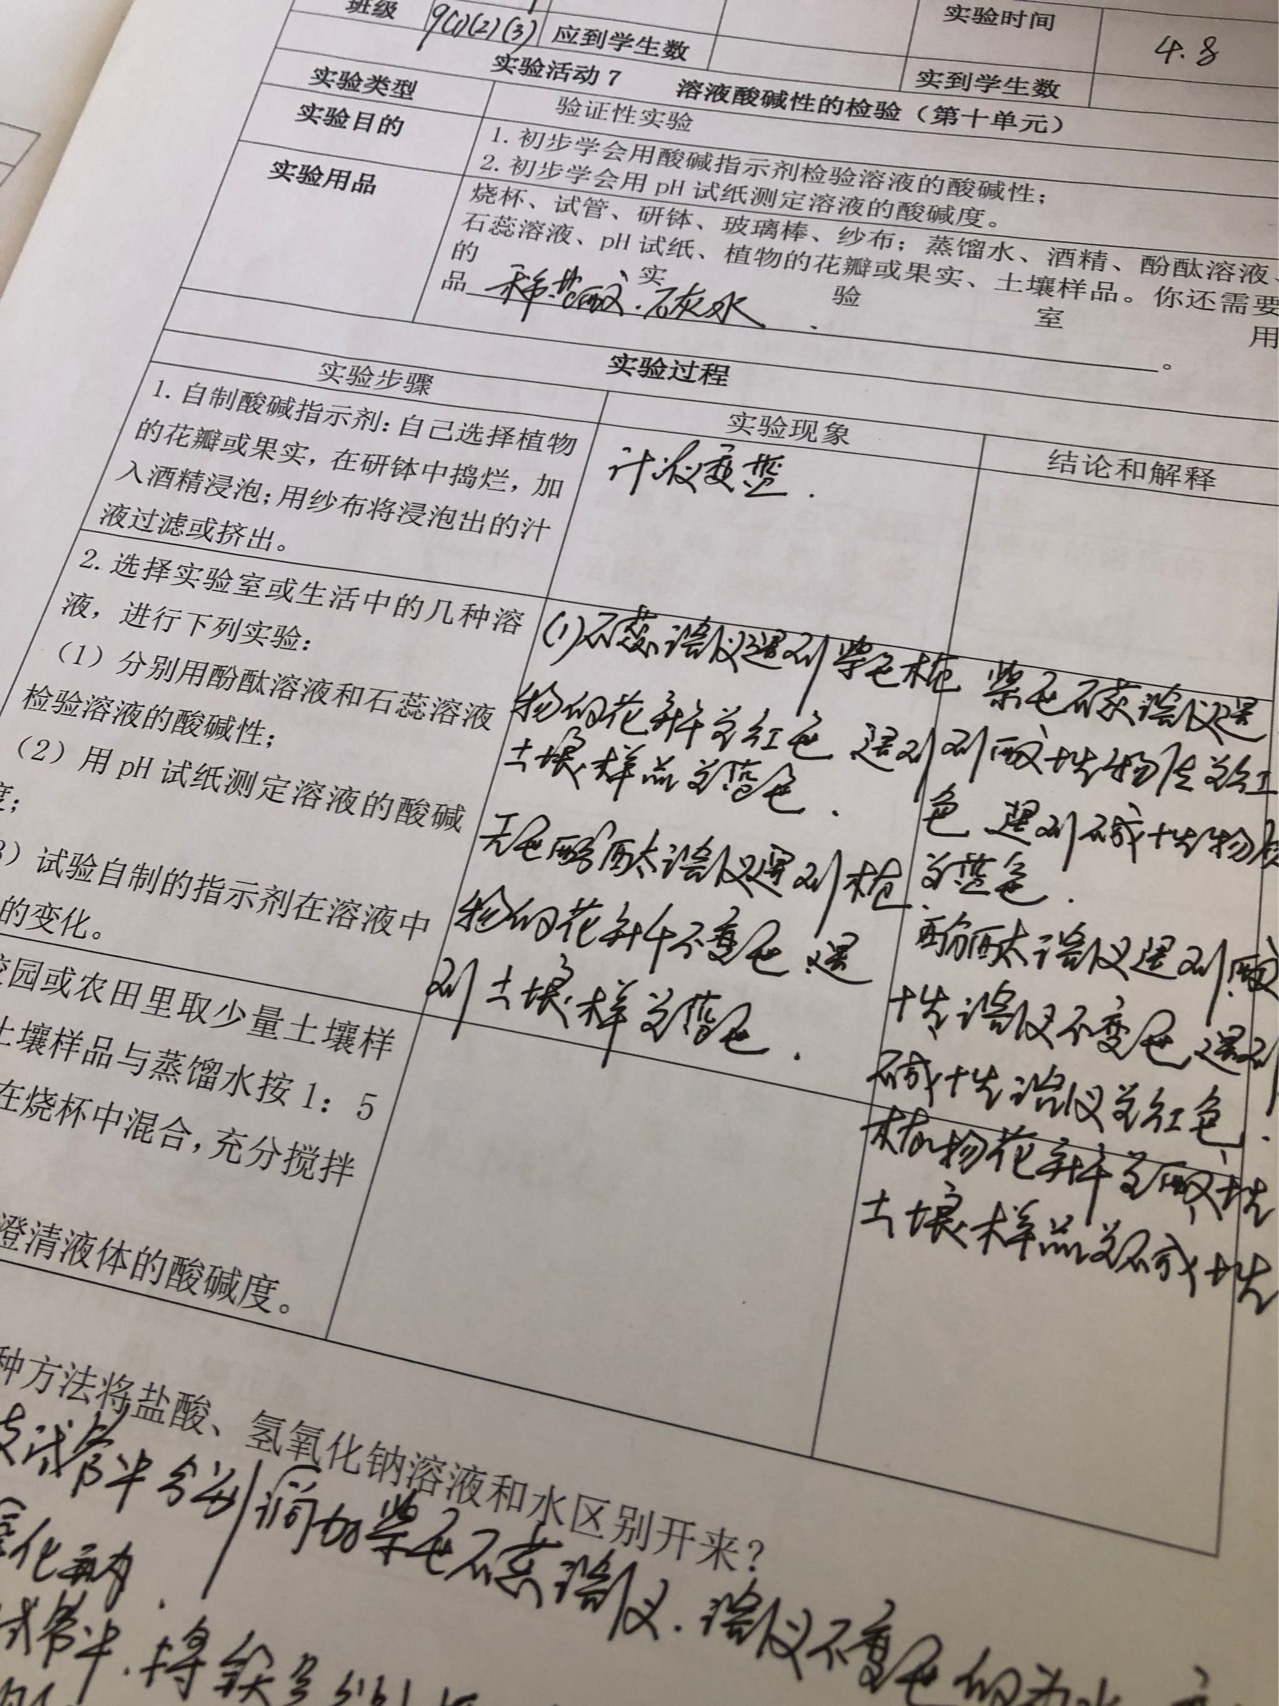 班级 9(1)(2)(3) 应到学生数 实验时间 4.8
实到学生数
实验活动7 溶液酸碱性的检验（第十单元）
实验类型 验证性实验
实验目的 1. 初步学会用酸碱指示剂检验溶液的酸碱性；
2. 初步学会用 pH 试纸测定溶液的酸碱度。
实验用品 烧杯、试管、研钵、玻璃棒、纱布；蒸馏水、酒精、酚酞溶液、
石蕊溶液、pH 试纸、植物的花瓣或果实、土壤样品。你还需要
的 实 验 室 用
品 稀盐酸、石灰水 。
实验过程
实验步骤 实验现象 结论和解释
1. 自制酸碱指示剂：自己选择植物
的花瓣或果实，在研钵中捣烂，加
入酒精浸泡；用纱布将浸泡出的汁
液过滤或挤出。
汁液变蓝.
2. 选择实验室或生活中的几种溶
液，进行下列实验：
（1）分别用酚酞溶液和石蕊溶液
检验溶液的酸碱性；
（2）用 pH 试纸测定溶液的酸碱
度；
3）试验自制的指示剂在溶液中
的变化。
(1)石蕊溶液遇到紫色植
物的花瓣为红色 遇到
土壤样品为蓝色.
无色酚酞溶液遇到植
物的花瓣不变色 遇
到土壤样为蓝色.
紫色石蕊溶液遇
到酸性物质为红
色 遇到碱性物质
为蓝色.
酚酞溶液遇到酸
性溶液不变色 遇到
碱性溶液为红色.
植物花瓣为酸性
土壤样品为碱性
园或农田里取少量土壤样
土壤样品与蒸馏水按 1：5
在烧杯中混合，充分搅拌
澄清液体的酸碱度。
种方法将盐酸、氢氧化钠溶液和水区别开来？
支试管中分别滴加紫色石蕊溶液. 溶液不变色的为水
氧化钠.
试管中. 将